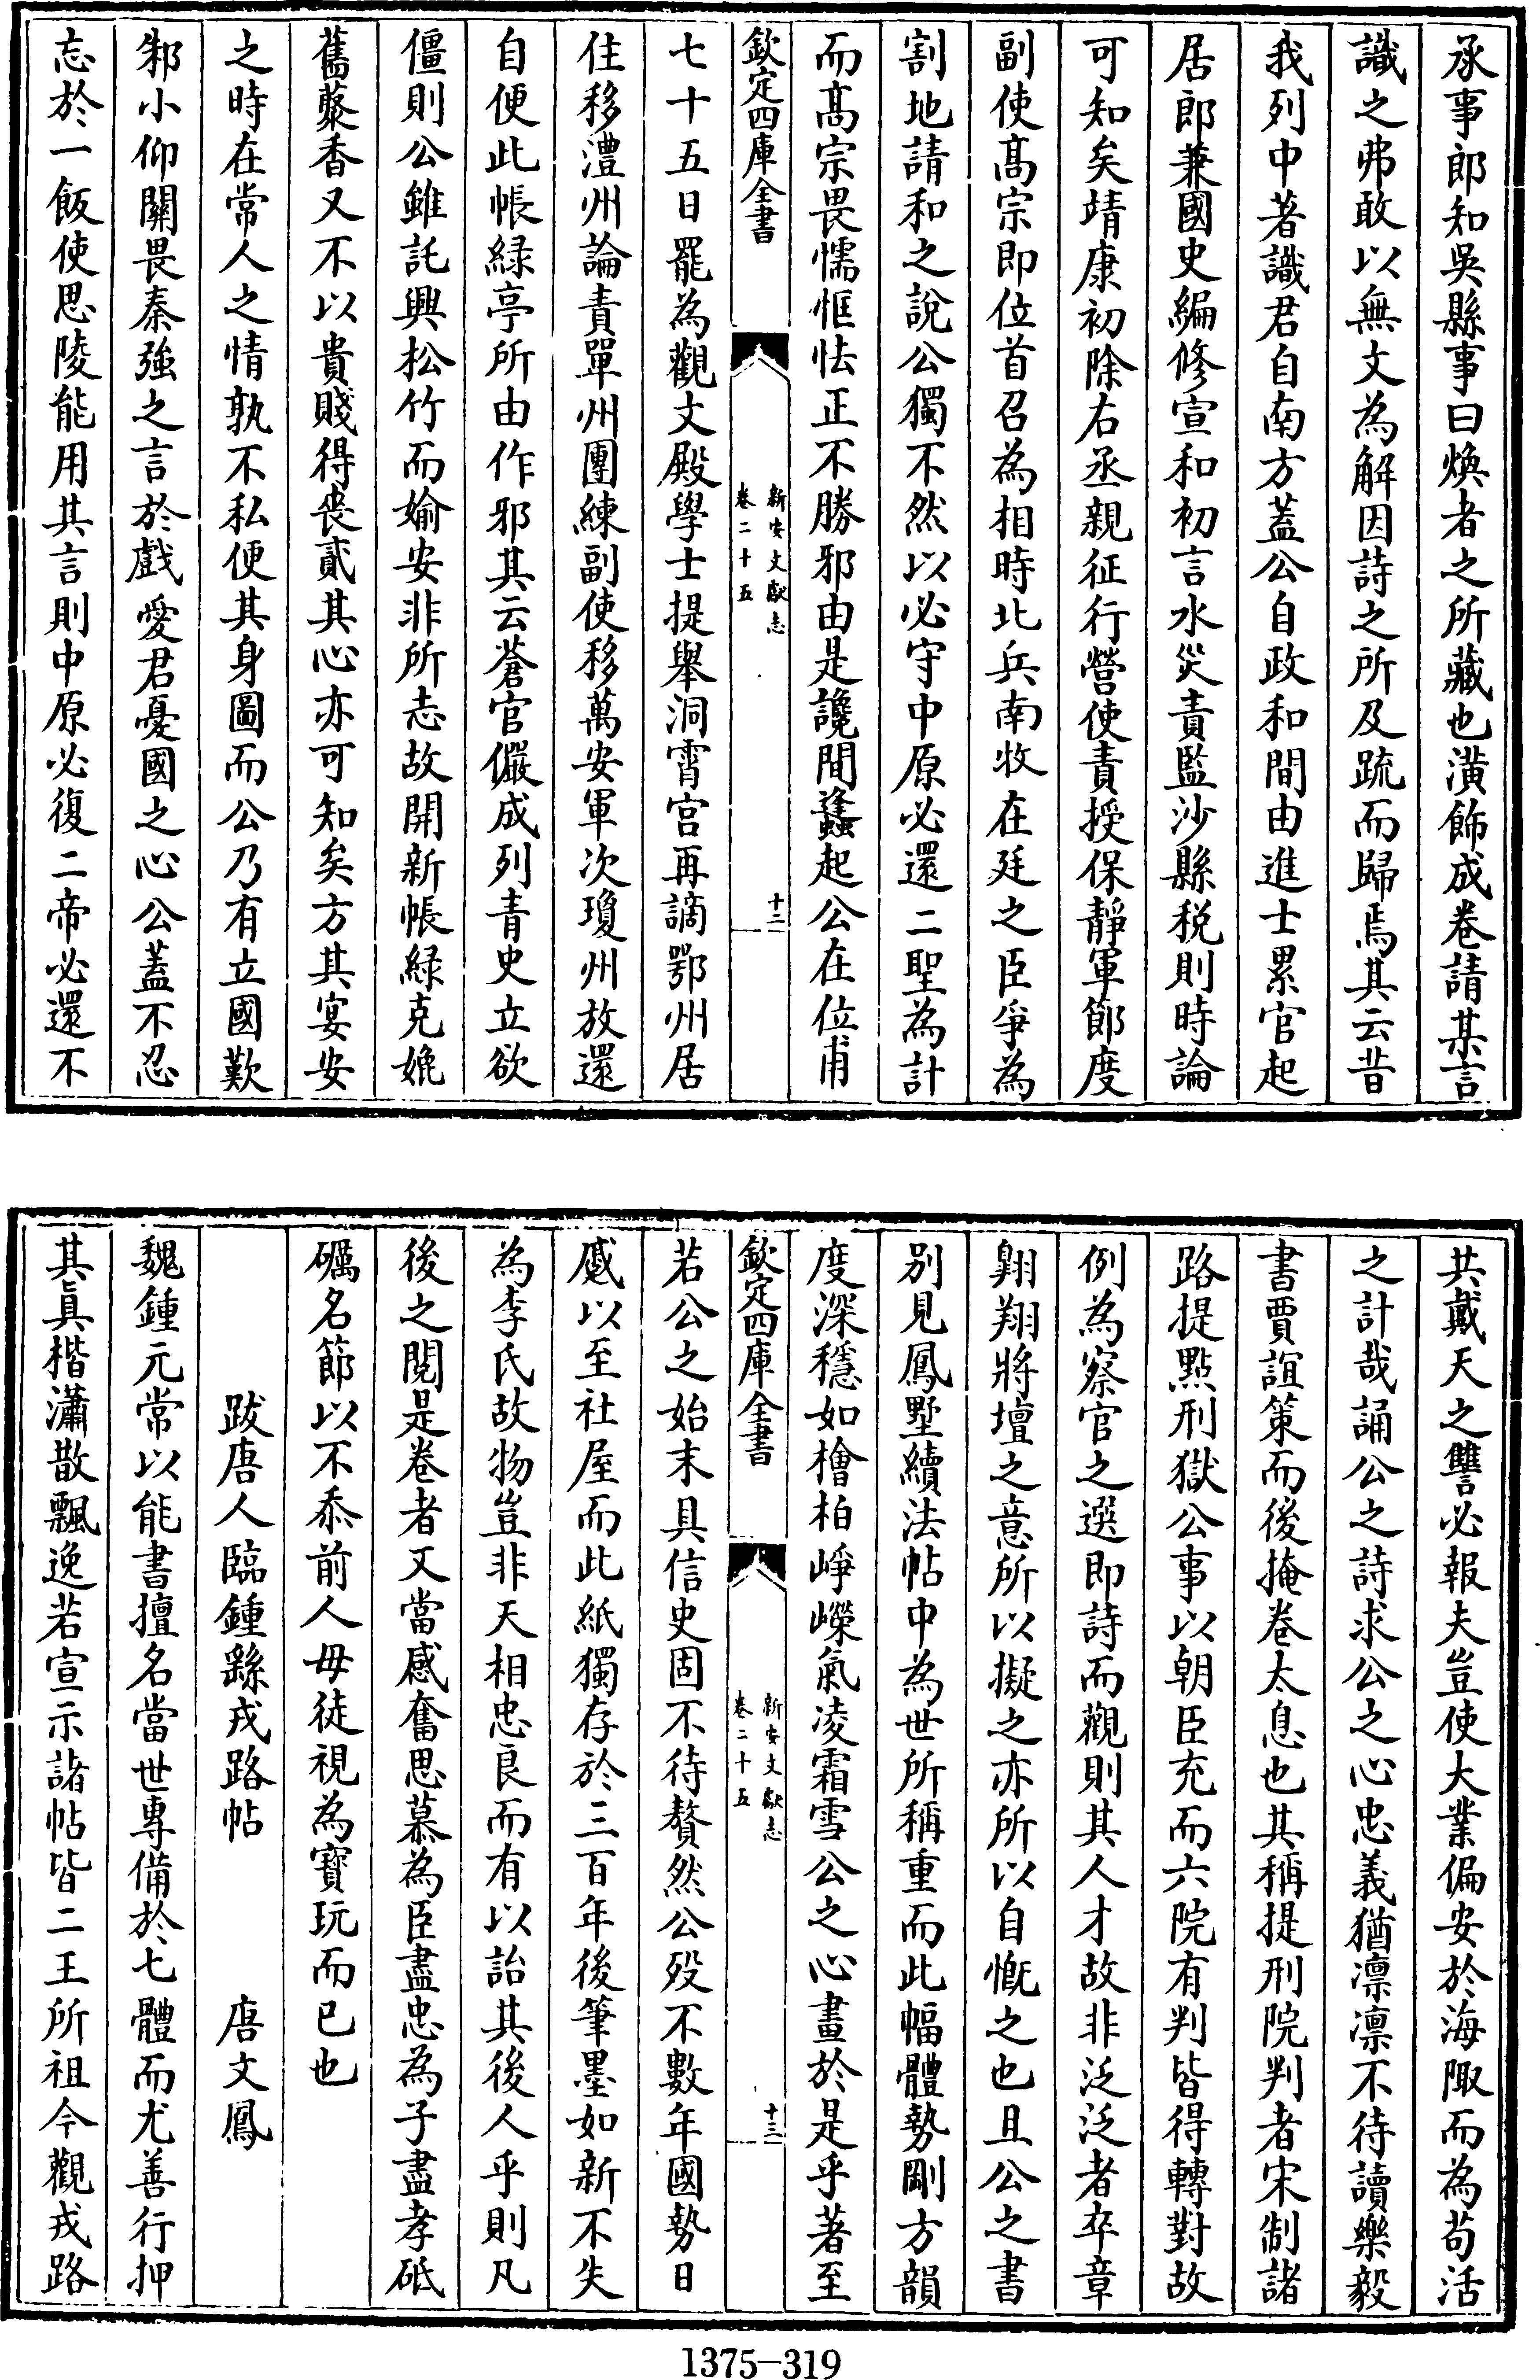 承事郎知吳縣事曰煥者之所藏也潢飾成卷請某言
識之弗敢以無文為解因詩之所及疏而歸焉其云昔
我列中著識君自南方蓋公自政和間由進士累官起
居郎兼國史編修宣和初言水災責監沙縣税則時論
可知矣靖康初除右丞親征行營使責授保靜軍節度
副使髙宗即位首召為相時北兵南牧在廷之臣爭為
割地請和之說公獨不然以必守中原必還二聖為計
而髙宗畏懦恇怯正不勝邪由是讒間蠭起公在位甫
欽定四庫全書
新安文獻志
卷二十五
十二
七十五日罷為觀文殿學士提舉洞霄宫再謫鄂州居
住移澧州論責單州團練副使移萬安軍次瓊州放還
自便此帳緑亭所由作邪其云蒼官儼成列青史立欲
僵則公雖託興松竹而媮安非所志故開新帳緑克娩
舊蔾香又不以貴賤得喪貳其心亦可知矣方其宴安
之時在常人之情孰不私便其身圖而公乃有立國歎
邾小仰關畏秦強之言於戲愛君憂國之心公蓋不忍
忘於一飯使思陵能用其言則中原必復二帝必還不
共戴天之讐必報夫豈使大業偏安於海陬而為茍活
之計哉誦公之詩求公之心忠義猶凛凛不待讀樂毅
書賈誼策而後掩卷太息也其稱提刑院判者宋制諸
路提點刑獄公事以朝臣充而六院有判皆得轉對故
例為察官之選即詩而觀則其人才故非泛泛者卒章
翺翔將壇之意所以擬之亦所以自慨之也且公之書
别見鳳墅續法帖中為世所稱重而此幅體勢剛方韻
度深穩如檜柏崢嶸氣凌霜雪公之心畫於是乎著至
欽定四庫全書
新安文獻志
卷二十五
十三
若公之始末具信史固不待贅然公殁不數年國勢日
蹙以至社屋而此紙獨存於三百年後筆墨如新不失
為李氏故物豈非天相忠良而有以詒其後人乎則凡
後之閲是卷者又當感奮思慕為臣盡忠為子盡孝砥
礪名節以不忝前人毋徒視為寳玩而已也
跋唐人臨鍾繇戎路帖　唐文鳳
魏鍾元常以能書擅名當世專備於七體而尤善行押
其真楷瀟散飄逸若宣示諸帖皆二王所祖今觀戎路
1375-319